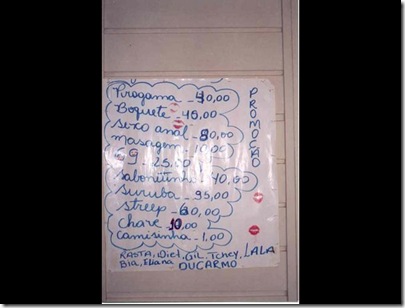 Pirogama - 40,00
Boquete - 45,00
sexo anal - 80,00
masagem - 10,00
69 - 25,50
sabonitinho - 40,00
suruba - 95,00
streep - 60,00
chave 10,00
camisinha - 1,00
PROMOCÃO
RASTA, Diet, GiL, Tchey, LALA
Bia, Eliana DUCARMO